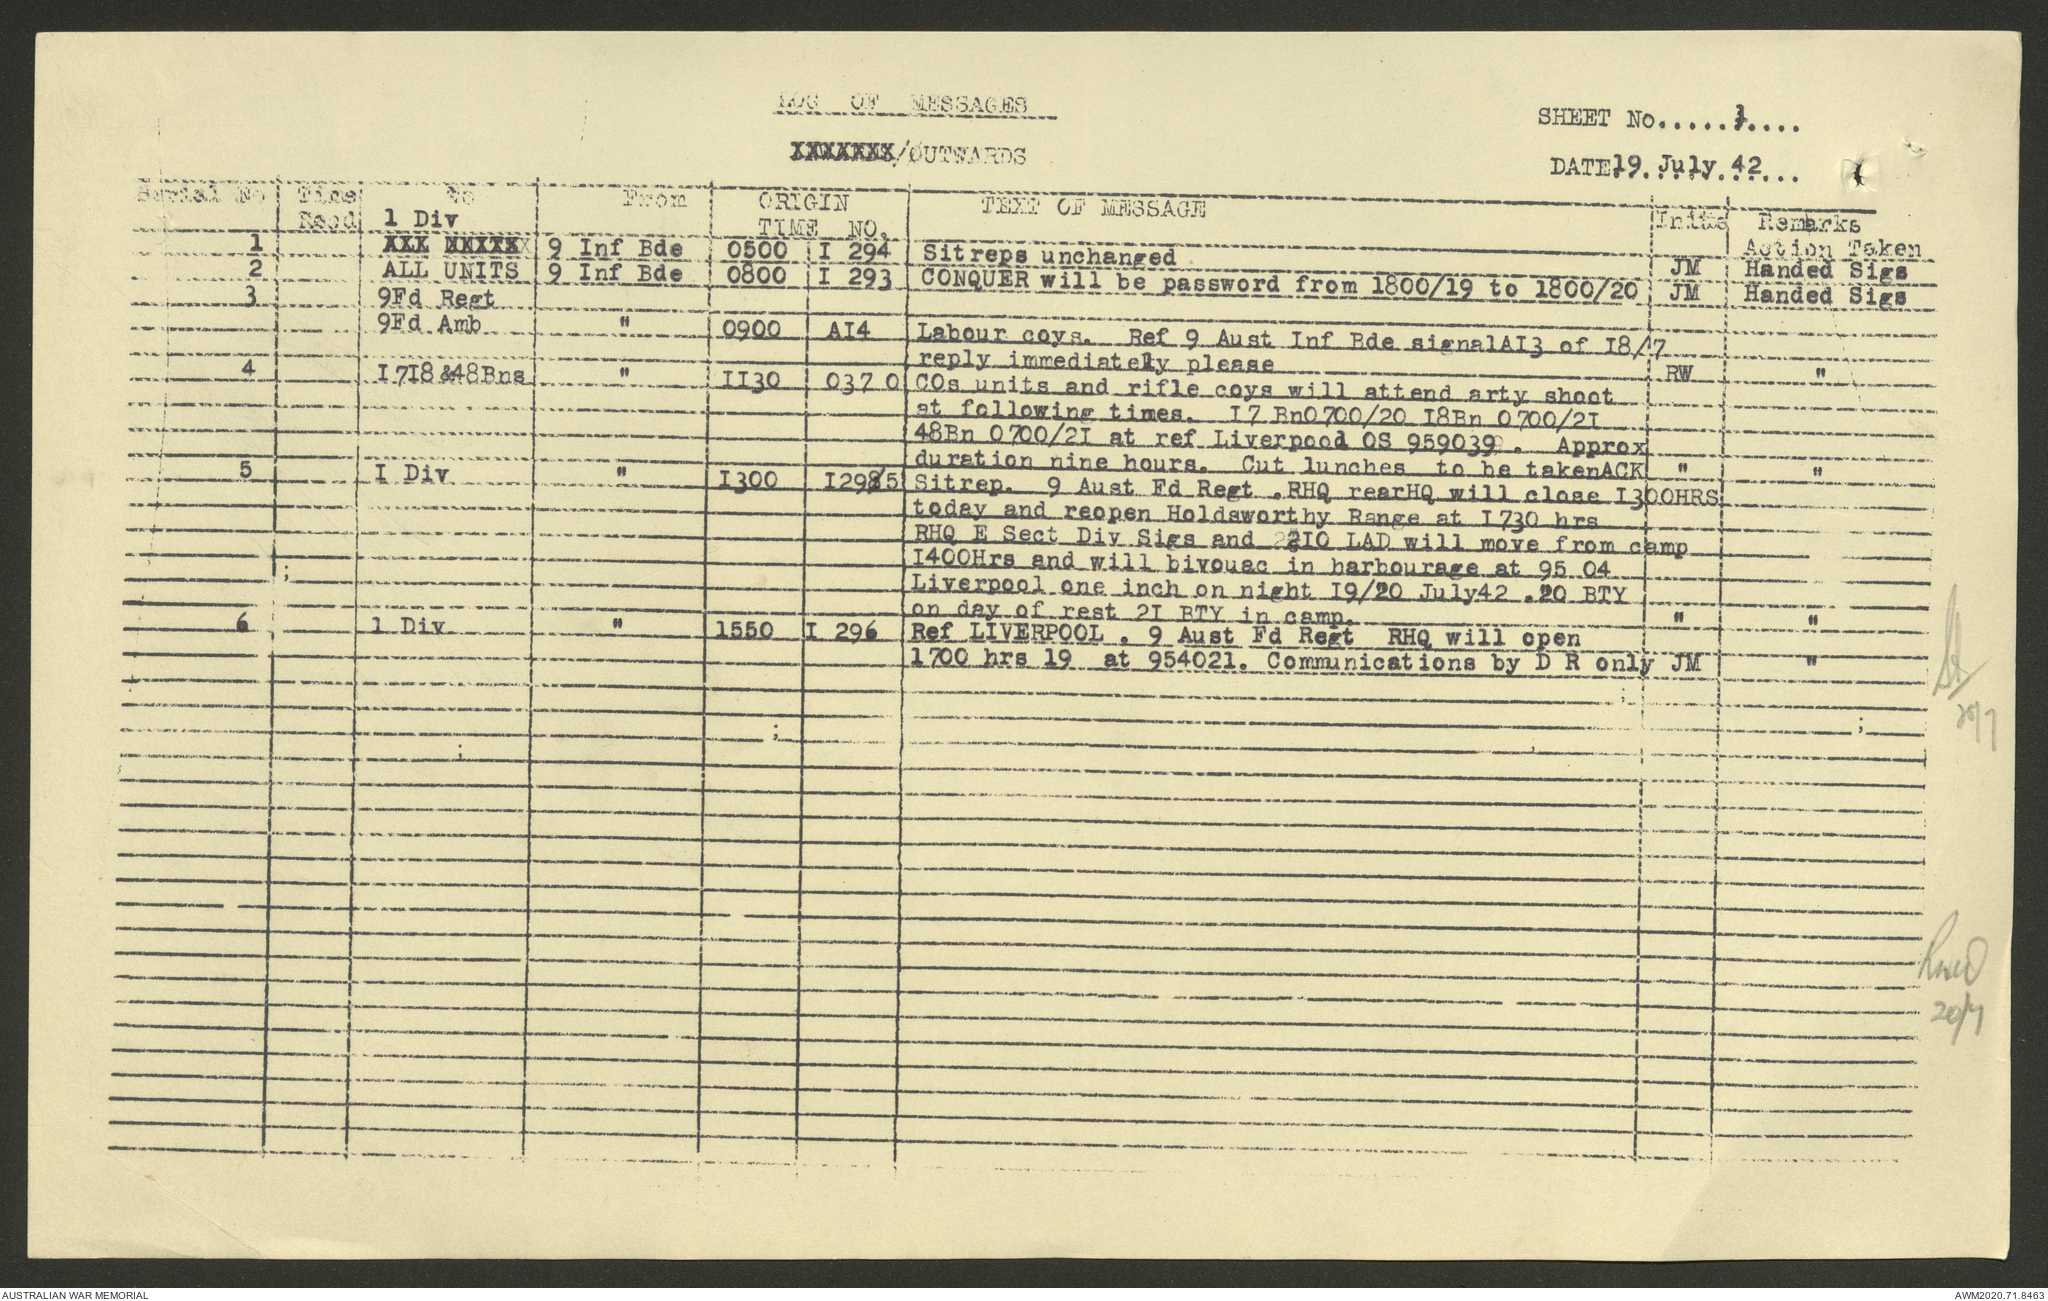 LOG OF MESSAGES
SHEET No.....1....
XXXXXXX/OUTWARDS
DATE19 July 42....
Serial No Time Recd To From ORIGIN TIME NO. TEXT OF MESSAGE Inits Remarks Action Taken
1 Div
1 9 Inf Bde 0500 I 294 Sitreps unchanged JM Handed Sigs
2 ALL UNITS 9 Inf Bde 0800 I 293 CONQUER will be password from 1800/19 to 1800/20 JM Handed Sigs
3 9Fd Regt
9Fd Amb " 0900 AI4 Labour coys. Ref 9 Aust Inf Bde signalAI3 of I8/7
reply immediately please RW "
4 I7I8&48Bns " II30 0370 COs units and rifle coys will attend arty shoot
at following times. I7 Bn0700/20 I8Bn 0700/2I
48Bn 0700/2I at ref Liverpool OS 959039 . Approx
duration nine hours. Cut lunches to be takenACK " "
5 I Div " I300 I295 Sitrep. 9 Aust Fd Regt .RHQ rearHQ will close I300HRS
today and reopen Holdsworthy Range at I730 hrs
RHQ E Sect Div Sigs and 2I0 LAD will move from camp
I400Hrs and will bivouac in harbourage at 95 04
Liverpool one inch on night I9/20 July42 .20 BTY
on day of rest 2I BTY in camp. " "
6 1 Div " 1550 I 296 Ref LIVERPOOL . 9 Aust Fd Regt RHQ will open
1700 hrs 19 at 954021. Communications by D R only JM "
20/7
20/7
AUSTRALIAN WAR MEMORIAL
AWM2020.71.8463